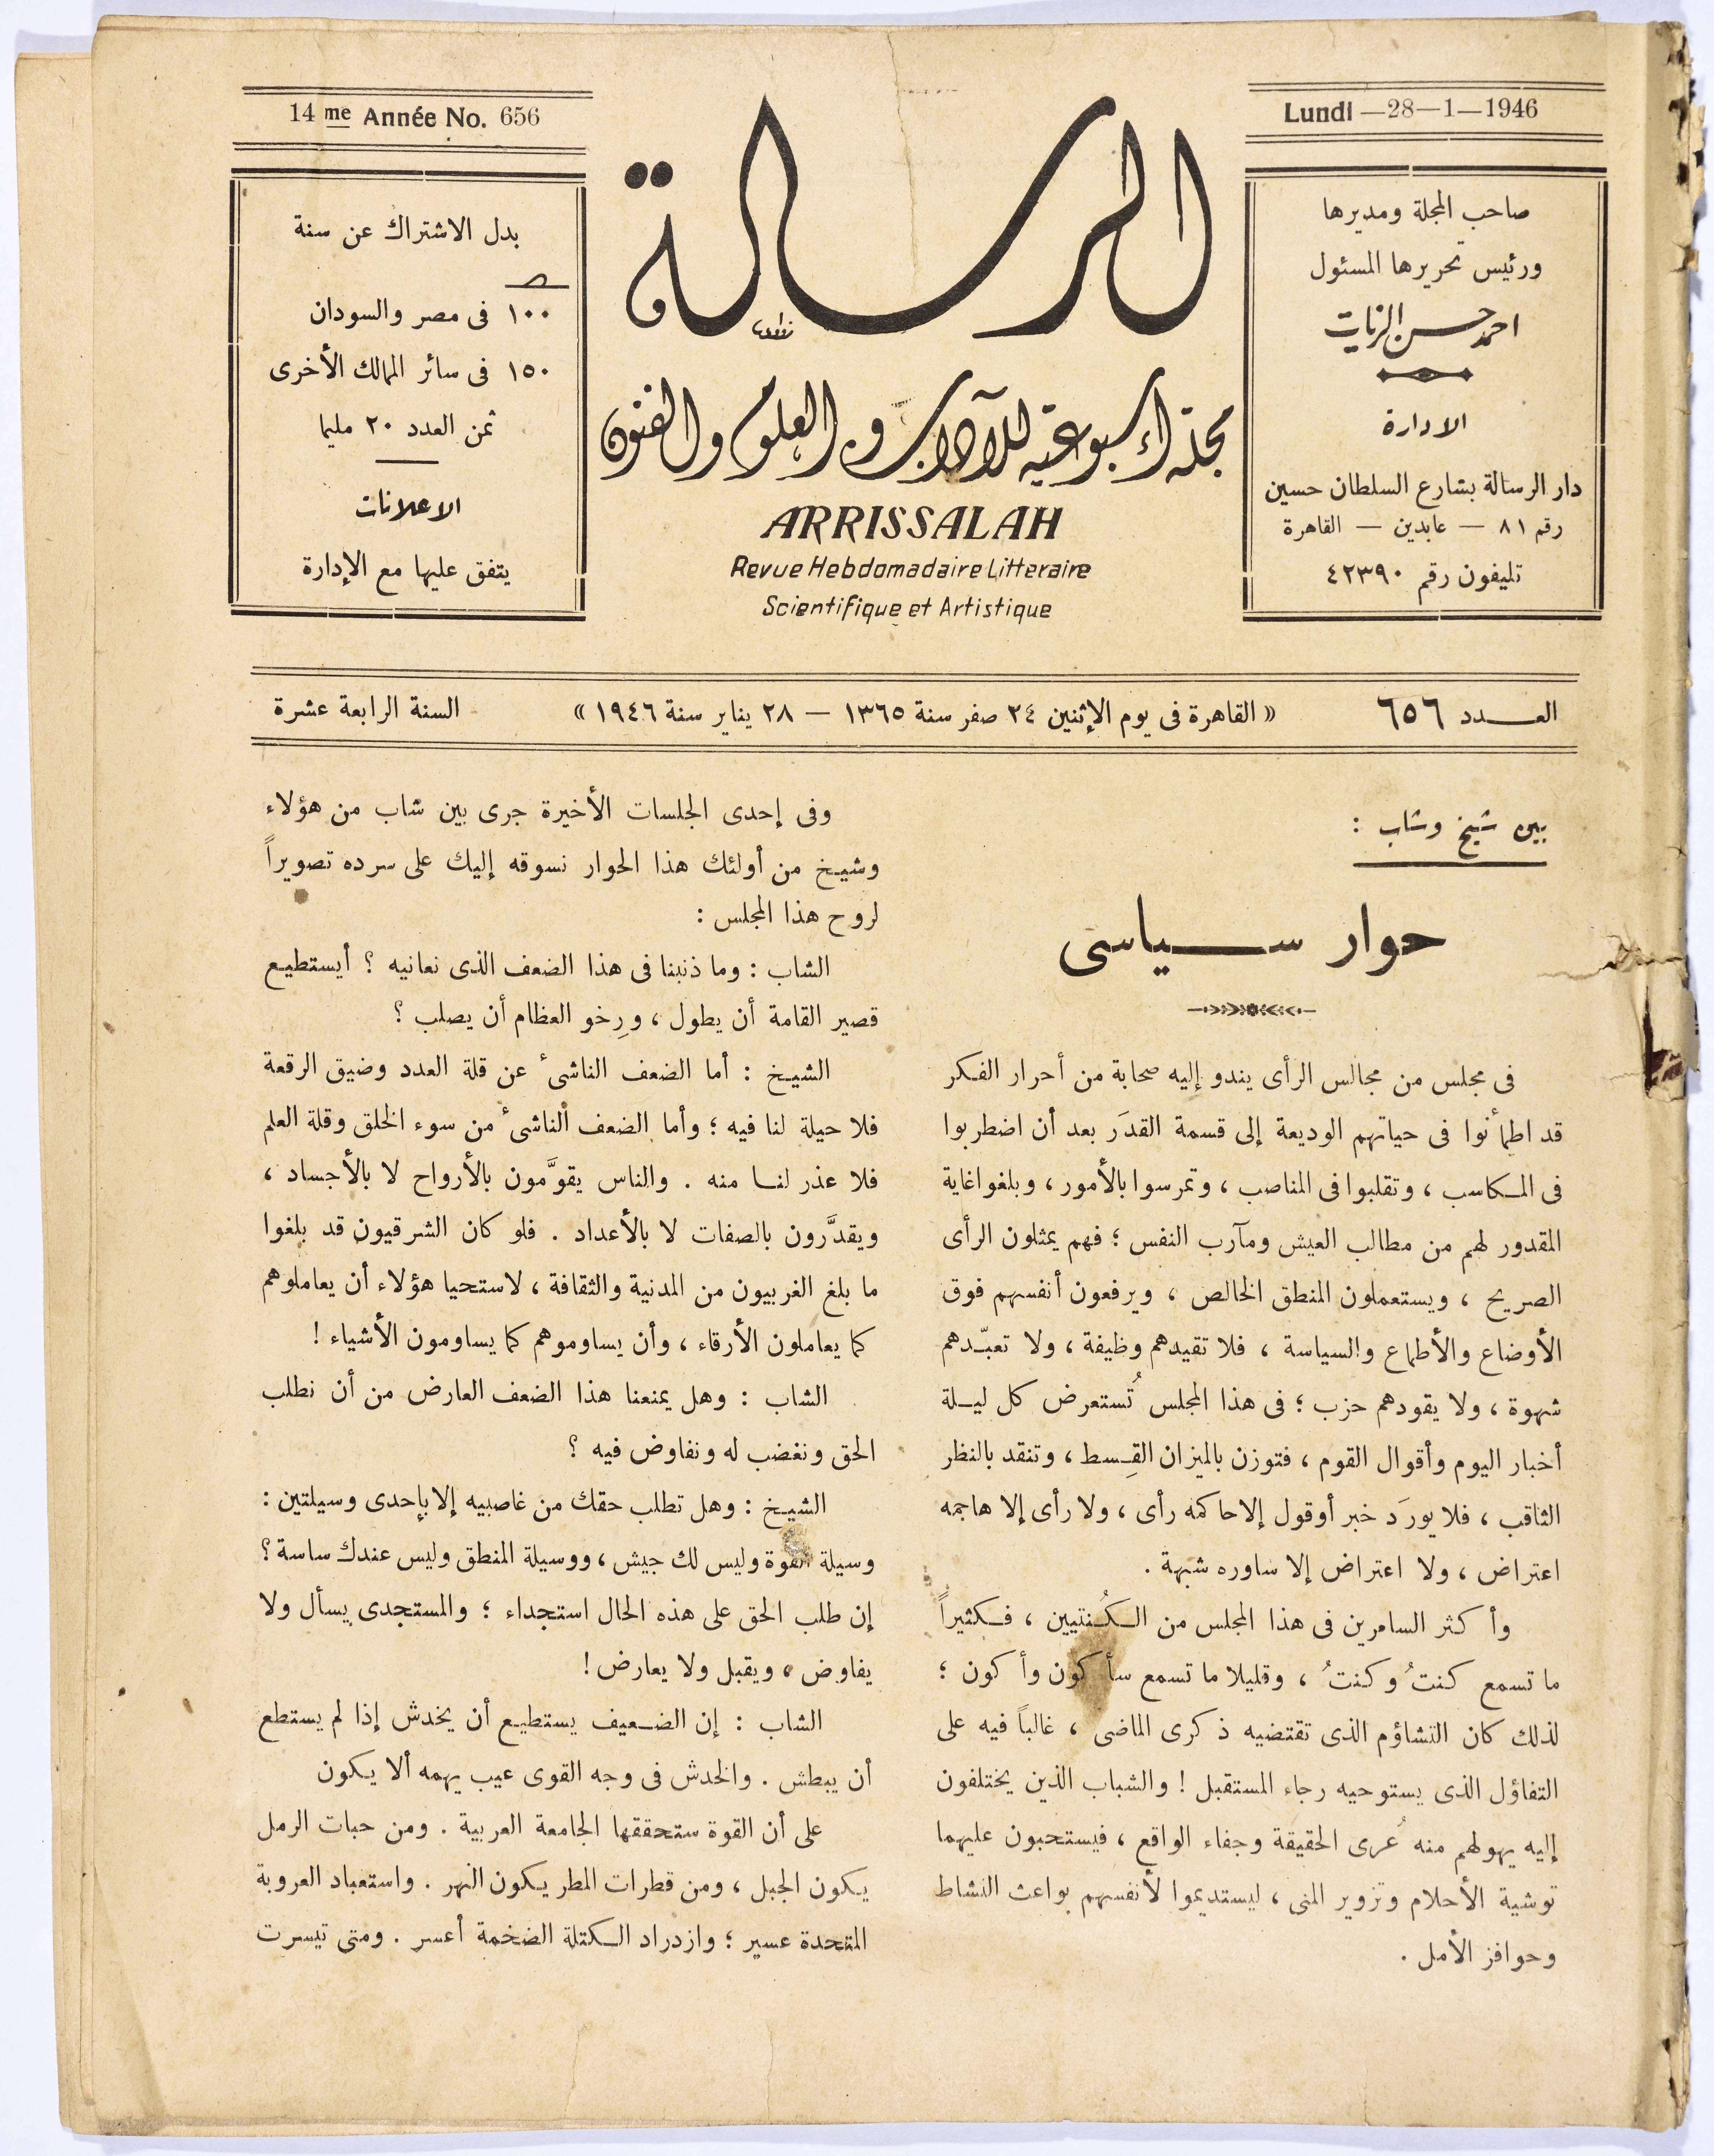 14 me Année No. 656
Lundi —28—1—1946
صاحب المجلة ومديرها
ورئيس تحريرها المسئول
احمد حسن الزيات
الادارة
دار الرسالة بشارع السلطان حسين
رقم ٨١ — عابدين — القاهرة
تليفون رقم ٤٢٣٩٠
الرسالة
مجلة أسبوعية للآداب والعلوم والفنون
ARRISSALAH
Revue Hebdomadaire Litteraire
Scientifique et Artistique
بدل الاشتراك عن سنة
١٠٠ فى مصر والسودان
١٥٠ فى سائر الممالك الأخرى
ثمن العدد ٢٠ مليما
الاعلانات
يتفق عليها مع الإدارة
العـــدد ٦٥٦
« القاهرة فى يوم الإثنين ٢٤ صفر سنة ١٣٦٥ — ٢٨ يناير سنة ١٩٤٦ »
السنة الرابعة عشرة
بين شيخ وشاب :
حوار ســـياسى
فى مجلس من مجالس الرأى يندو إليه صحابة من أحرار الفكر
قد اطمأنوا فى حياتهم الوديعة إلى قسمة القدَر بعد أن اضطربوا
فى المكاسب ، وتقلبوا فى المناصب ، وتمرسوا بالأمور ، وبلغوا غاية
المقدور لهم من مطالب العيش ومآرب النفس ؛ فهم يمثلون الرأى
الصريح ، ويستعملون المنطق الخالص ، ويرفعون أنفسهم فوق
الأوضاع والأطماع والسياسة ، فلا تقيدهم وظيفة ، ولا تعبّدهم
شهوة ، ولا يقودهم حزب ؛ فى هذا المجلس تُستعرض كل ليـلة
أخبار اليوم وأقوال القوم ، فتوزن بالميزان القِسط ، وتنقد بالنظر
الثاقب ، فلا يورَد خبر أو قول إلا حاكمه رأى ، ولا رأى إلا هاجمه
اعتراض ، ولا اعتراض إلا ساوره شبهة .
وأكثر السامرين فى هذا المجلس من الكُنتيين ، فكثيراً
ما تسمع كنتُ وكنتُ ، وقليلا ما تسمع سأكون وأكون ؛
لذلك كان التشاؤم الذى تقتضيه ذكرى الماضى ، غالباً فيه على
التفاؤل الذى يستوحيه رجاء المستقبل ! والشباب الذين يختلفون
إليه يهولهم منه عُرى الحقيقة وجفاء الواقع ، فيستحبون عليهما
توشية الأحلام وتزوير المنى ، ليستديموا لأنفسهم بواعث النشاط
وحوافز الأمل .
وفى إحدى الجلسات الأخيرة جرى بين شاب من هؤلاء
وشيخ من أولئك هذا الحوار نسوقه إليك على سرده تصويراً
لروح هذا المجلس :
الشاب : وما ذنبنا فى هذا الضعف الذى نعانيه ؟ أيستطيع
قصير القامة أن يطول ، ورِخو العظام أن يصلب ؟
الشيخ : أما الضعف الناشئ عن قلة العدد وضيق الرقعة
فلا حيلة لنا فيه ؛ وأما الضعف الناشئ من سوء الخلق وقلة العلم
فلا عذر لنـا منه . والناس يقوَّمون بالأرواح لا بالأجساد ،
ويقدَّرون بالصفات لا بالأعداد . فلو كان الشرقيون قد بلغوا
ما بلغ الغربيون من المدنية والثقافة ، لاستحيا هؤلاء أن يعاملوهم
كما يعاملون الأرقاء ، وأن يساوموهم كما يساومون الأشياء !
الشاب : وهل يمنعنا هذا الضعف العارض من أن نطلب
الحق ونغضب له ونفاوض فيه ؟
الشيخ : وهل تطلب حقك من غاصبيه إلا بإحدى وسيلتين :
وسيلة القوة وليس لك جيش ، ووسيلة المنطق وليس عندك ساسة ؟
إن طلب الحق على هذه الحال استجداء ؛ والمستجدى يسأل ولا
يفاوض ، ويقبل ولا يعارض !
الشاب : إن الضـعيف يستطيع أن يخدش إذا لم يستطع
أن يبطش . والخدش فى وجه القوى عيب يهمه ألا يكون
على أن القوة ستحققها الجامعة العربية . ومن حبات الرمل
يكون الجبل ، ومن قطرات المطر يكون النهر . واستعباد العروبة
المتحدة عسير ؛ وازدراد الكتلة الضخمة أعسر . ومتى تيسرت